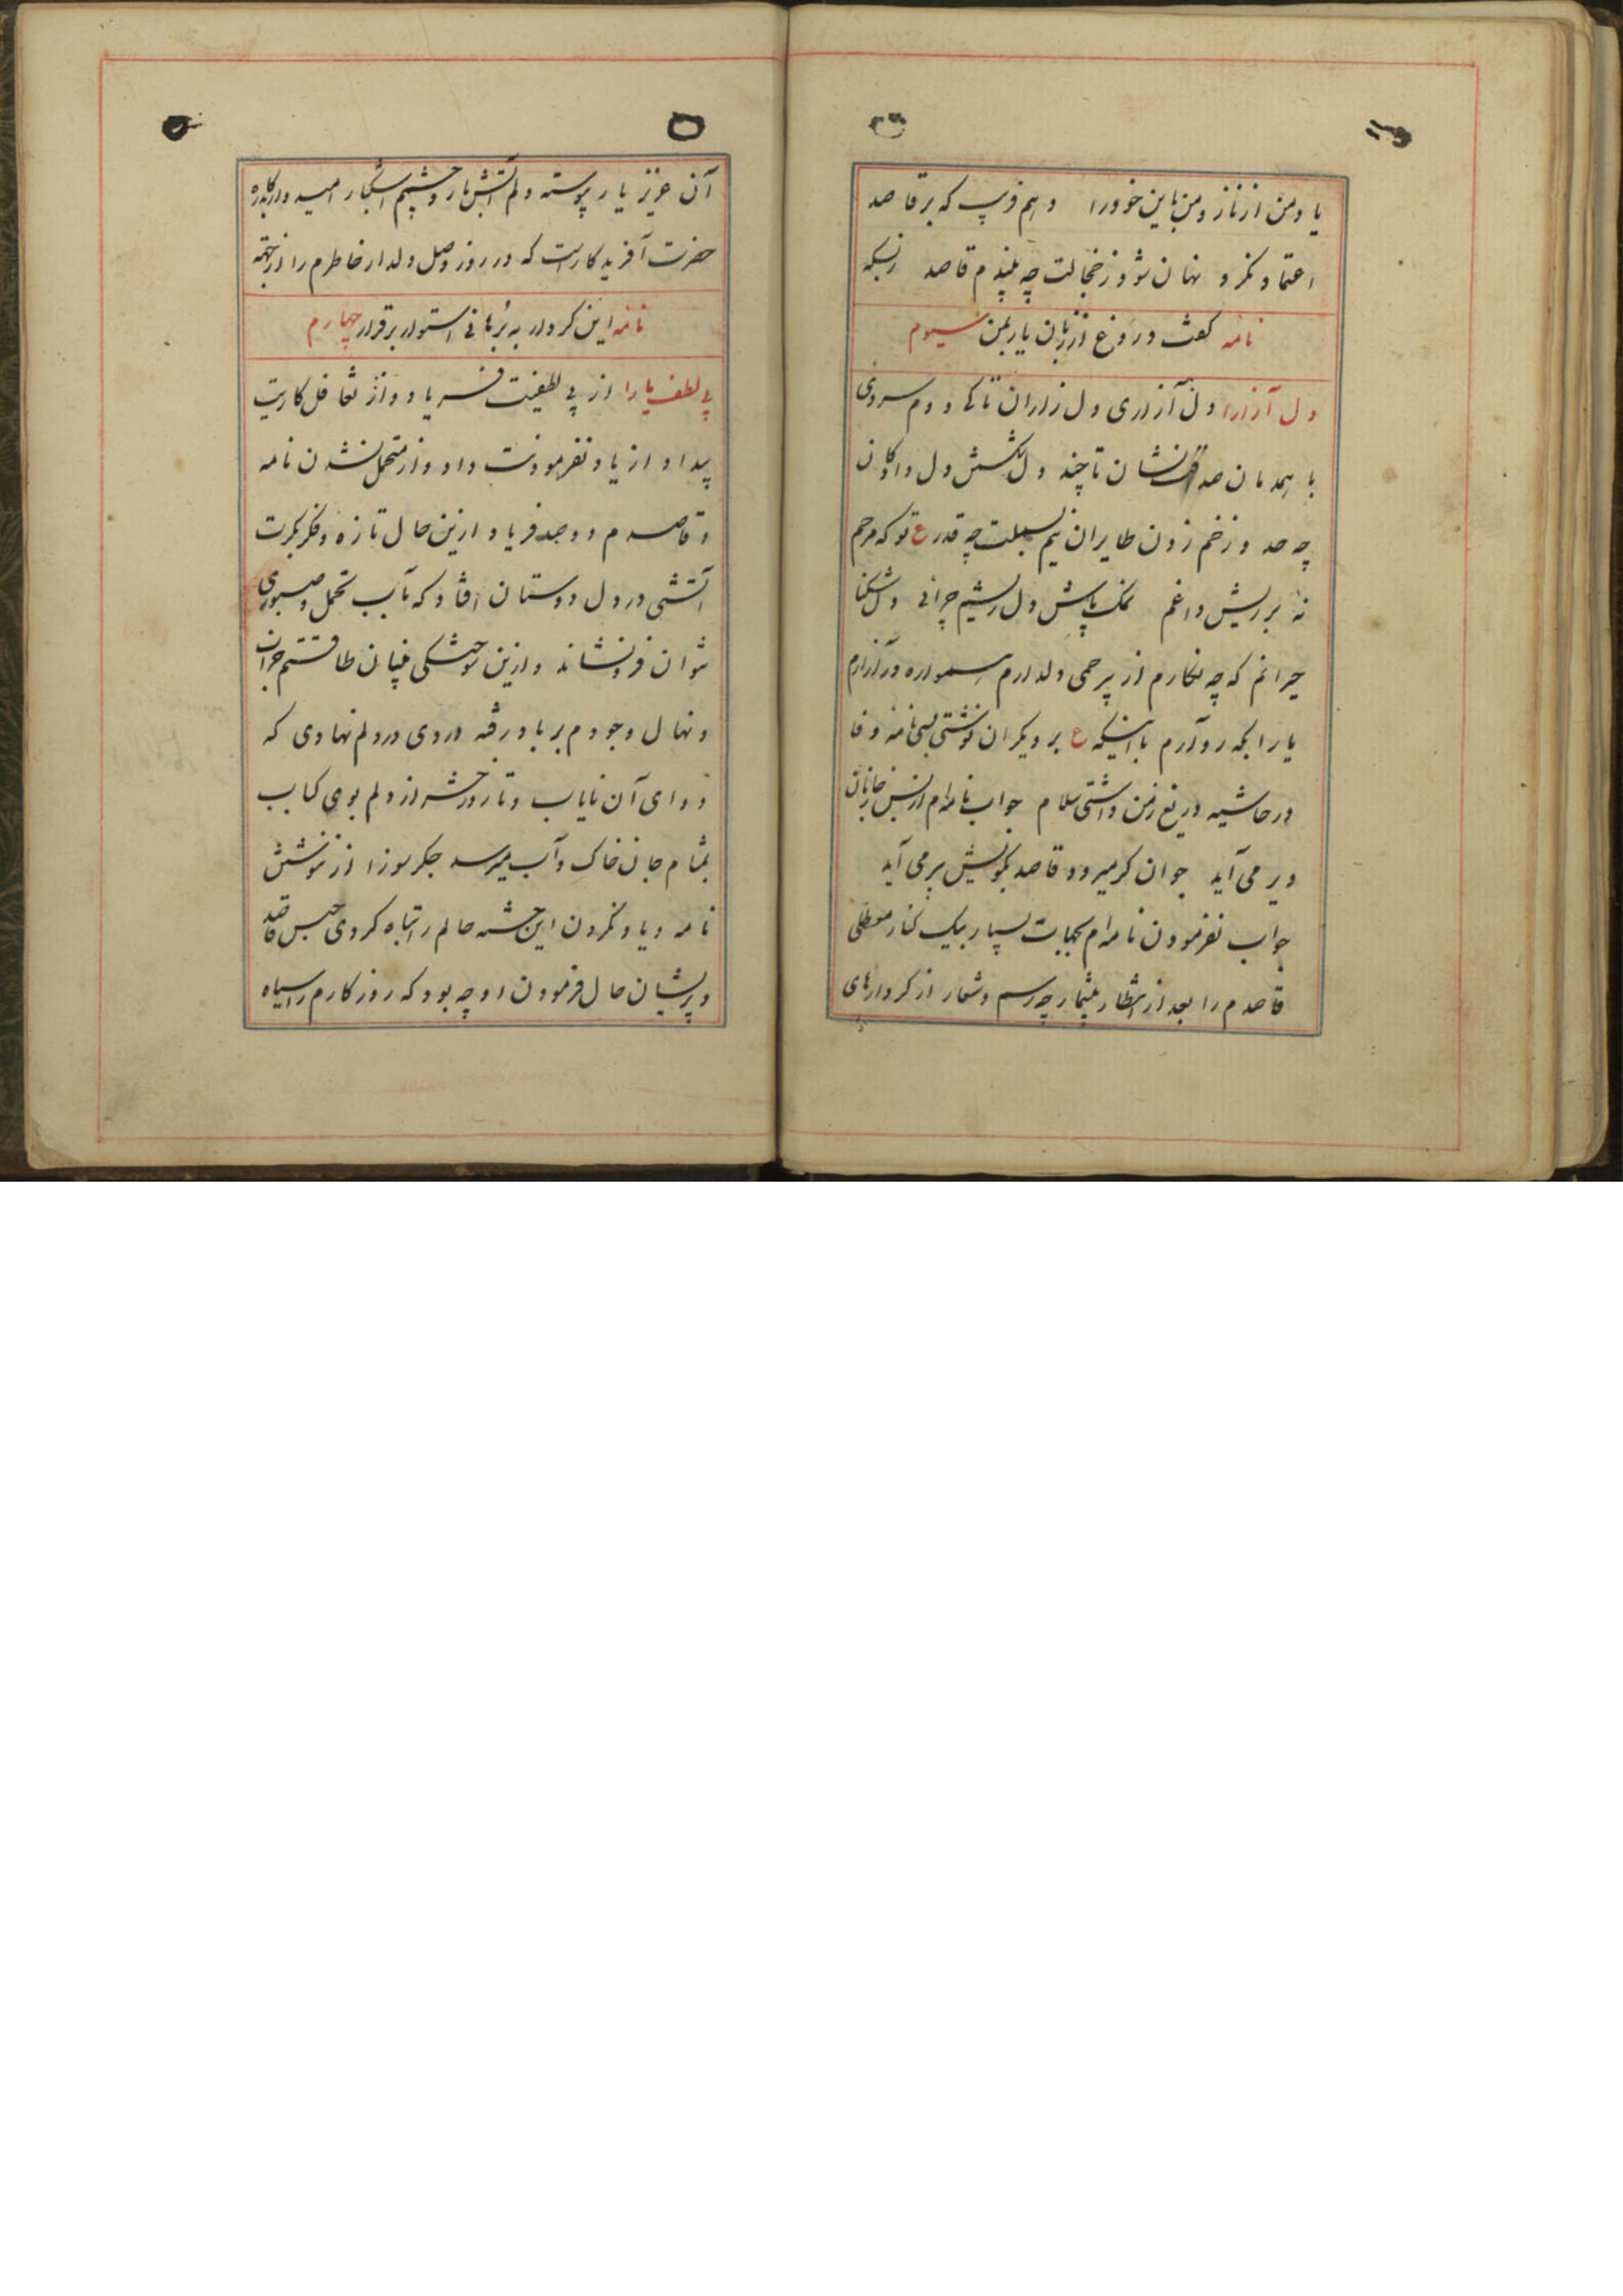 یاد من از ناز و من باین خودرا وهم فریب که بر قاصد
اعتماد نکرد نهان شود ز خجالت چو بیندم قاصد زبسکه
نامه گفت دروغ از زبان یار بمن سیوم
دل آزارا دل آزاری دل زاران تا کی و دم سردی
با همدمان صداقت نشان تا چند دل شکستن دل دادگان
چه حد و زخم زدن طایران نیم بسملت چه قدر ع تو که مرهم
نه بر ریش داغم نمک پاش دل ریشم چرائی دل شکنا
حیرانم که چه نگارم از بیرحمی دلدارم همواره در آزارم
یا رب که رو آرم با اینکه ع بر دیگران نوشتی بسی نامه وفا
در حاشیه دریغ ز من داشتی سلام جواب نامه‌ام از بس ز جانان
دیر می آید جوان گر میرود قاصد بکویش پیر می آید
جواب نفرمودن نامه‌ام بجهات بسیار یک کنار معطلی
قاصدم را بعد از انتظار بیشمار چه رسم و شعار از کردارهای
آن عزیز یار پیوسته دلم آتش بار و چشم اشکبار امید از درگاه
حضرت آفریدگار است که در روز وصل دلدار خاطرم را
نامه این کردار به برهانی استوار برقرار چهارم
بی لطف یارا از بی لطفیت فریاد و از تغافل کاریت
بیداد از یاد نفرمودنت داد و از متحمل نشدن نامه
و قاصدم دو صد فریاد ازین حال تازه و فکر بکرت
آتشی در دل دوستان افتاد که بآب تحمل و صبوری
نتوان فرو نشاند و ازین
و نهال وجودم بر باد رفته دردی در دلم نهادی که
دوای آن نایاب و تا روز حشر از دلم بوی کباب
بمشام جان خاک و آب میرسد جگر سوزا از ننوشتن
نامه و یاد نکردن این خسته حالم را تباه کردی حبس قاصد
و پریشان حال فرمودن او چه بود که روزگارم را سیاه